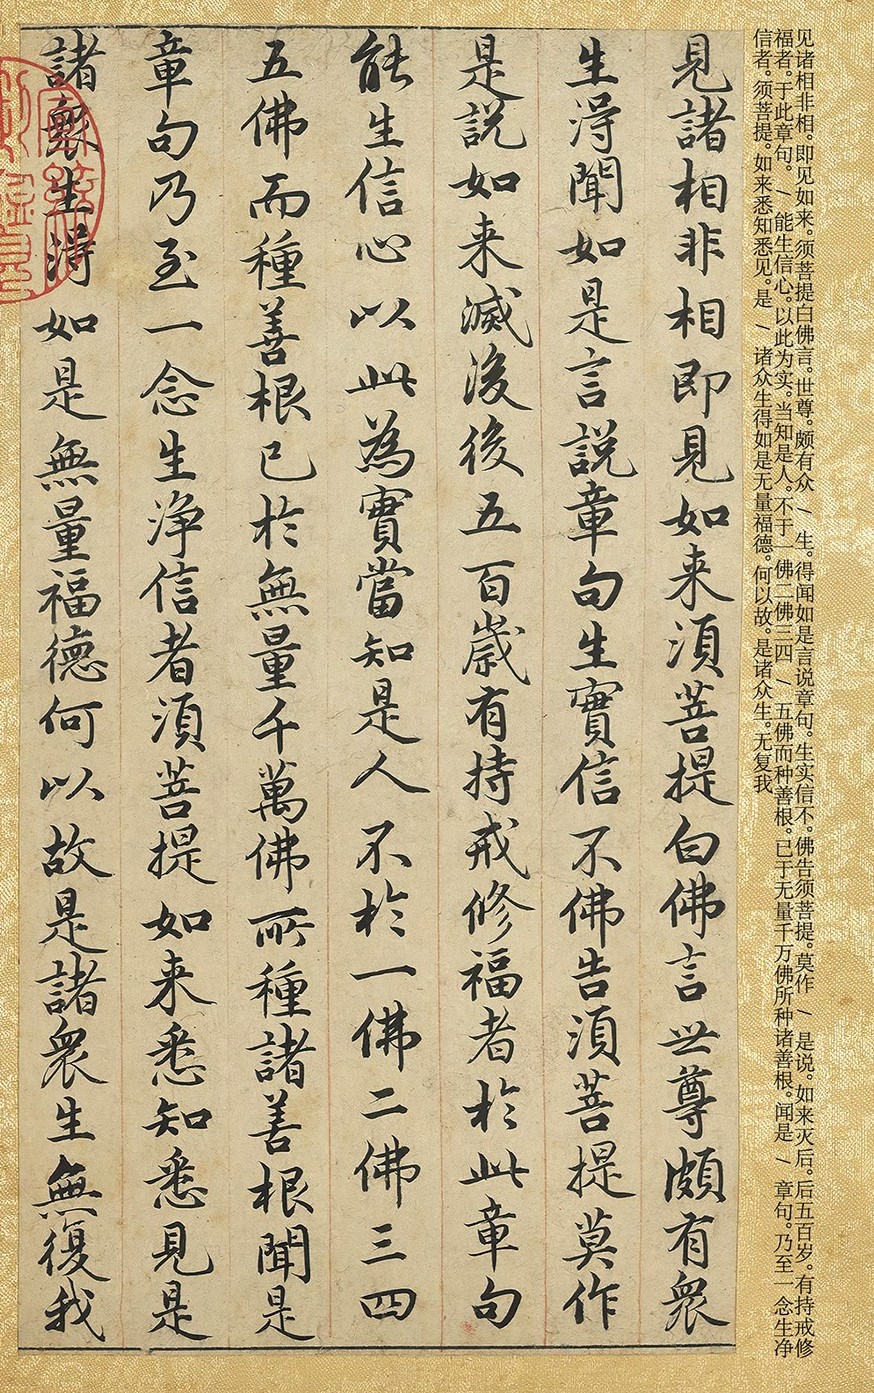 见诸相非相。即见如来。须菩提白佛言。世尊。颇有众 / 生。得闻如是言说章句。生实信不。佛告须菩提。莫作 / 是说。如来灭后。后五百岁。有持戒修
福者。于此章句。 / 能生信心。以此为实。当知是人。不于一佛二佛三四 / 五佛而种善根。已于无量千万佛所种诸善根。闻是 / 章句。乃至一念生净
信者。须菩提。如来悉知悉见。是 / 诸众生得如是无量福德。何以故。是诸众生。无复我
見諸相非相即見如来須菩提白佛言世尊頗有衆
生淂聞如是言説章句生實信不佛告須菩提莫作
是説如来滅後後五百歳有持戒修福者於此章句
能生信心以此為實當知是人不於一佛二佛三四
五佛而種善根已於無量千萬佛所種諸善根聞是
章句乃至一念生浄信者須菩提如来悉知悉見是
諸衆生淂如是無量福德何以故是諸衆生無復我